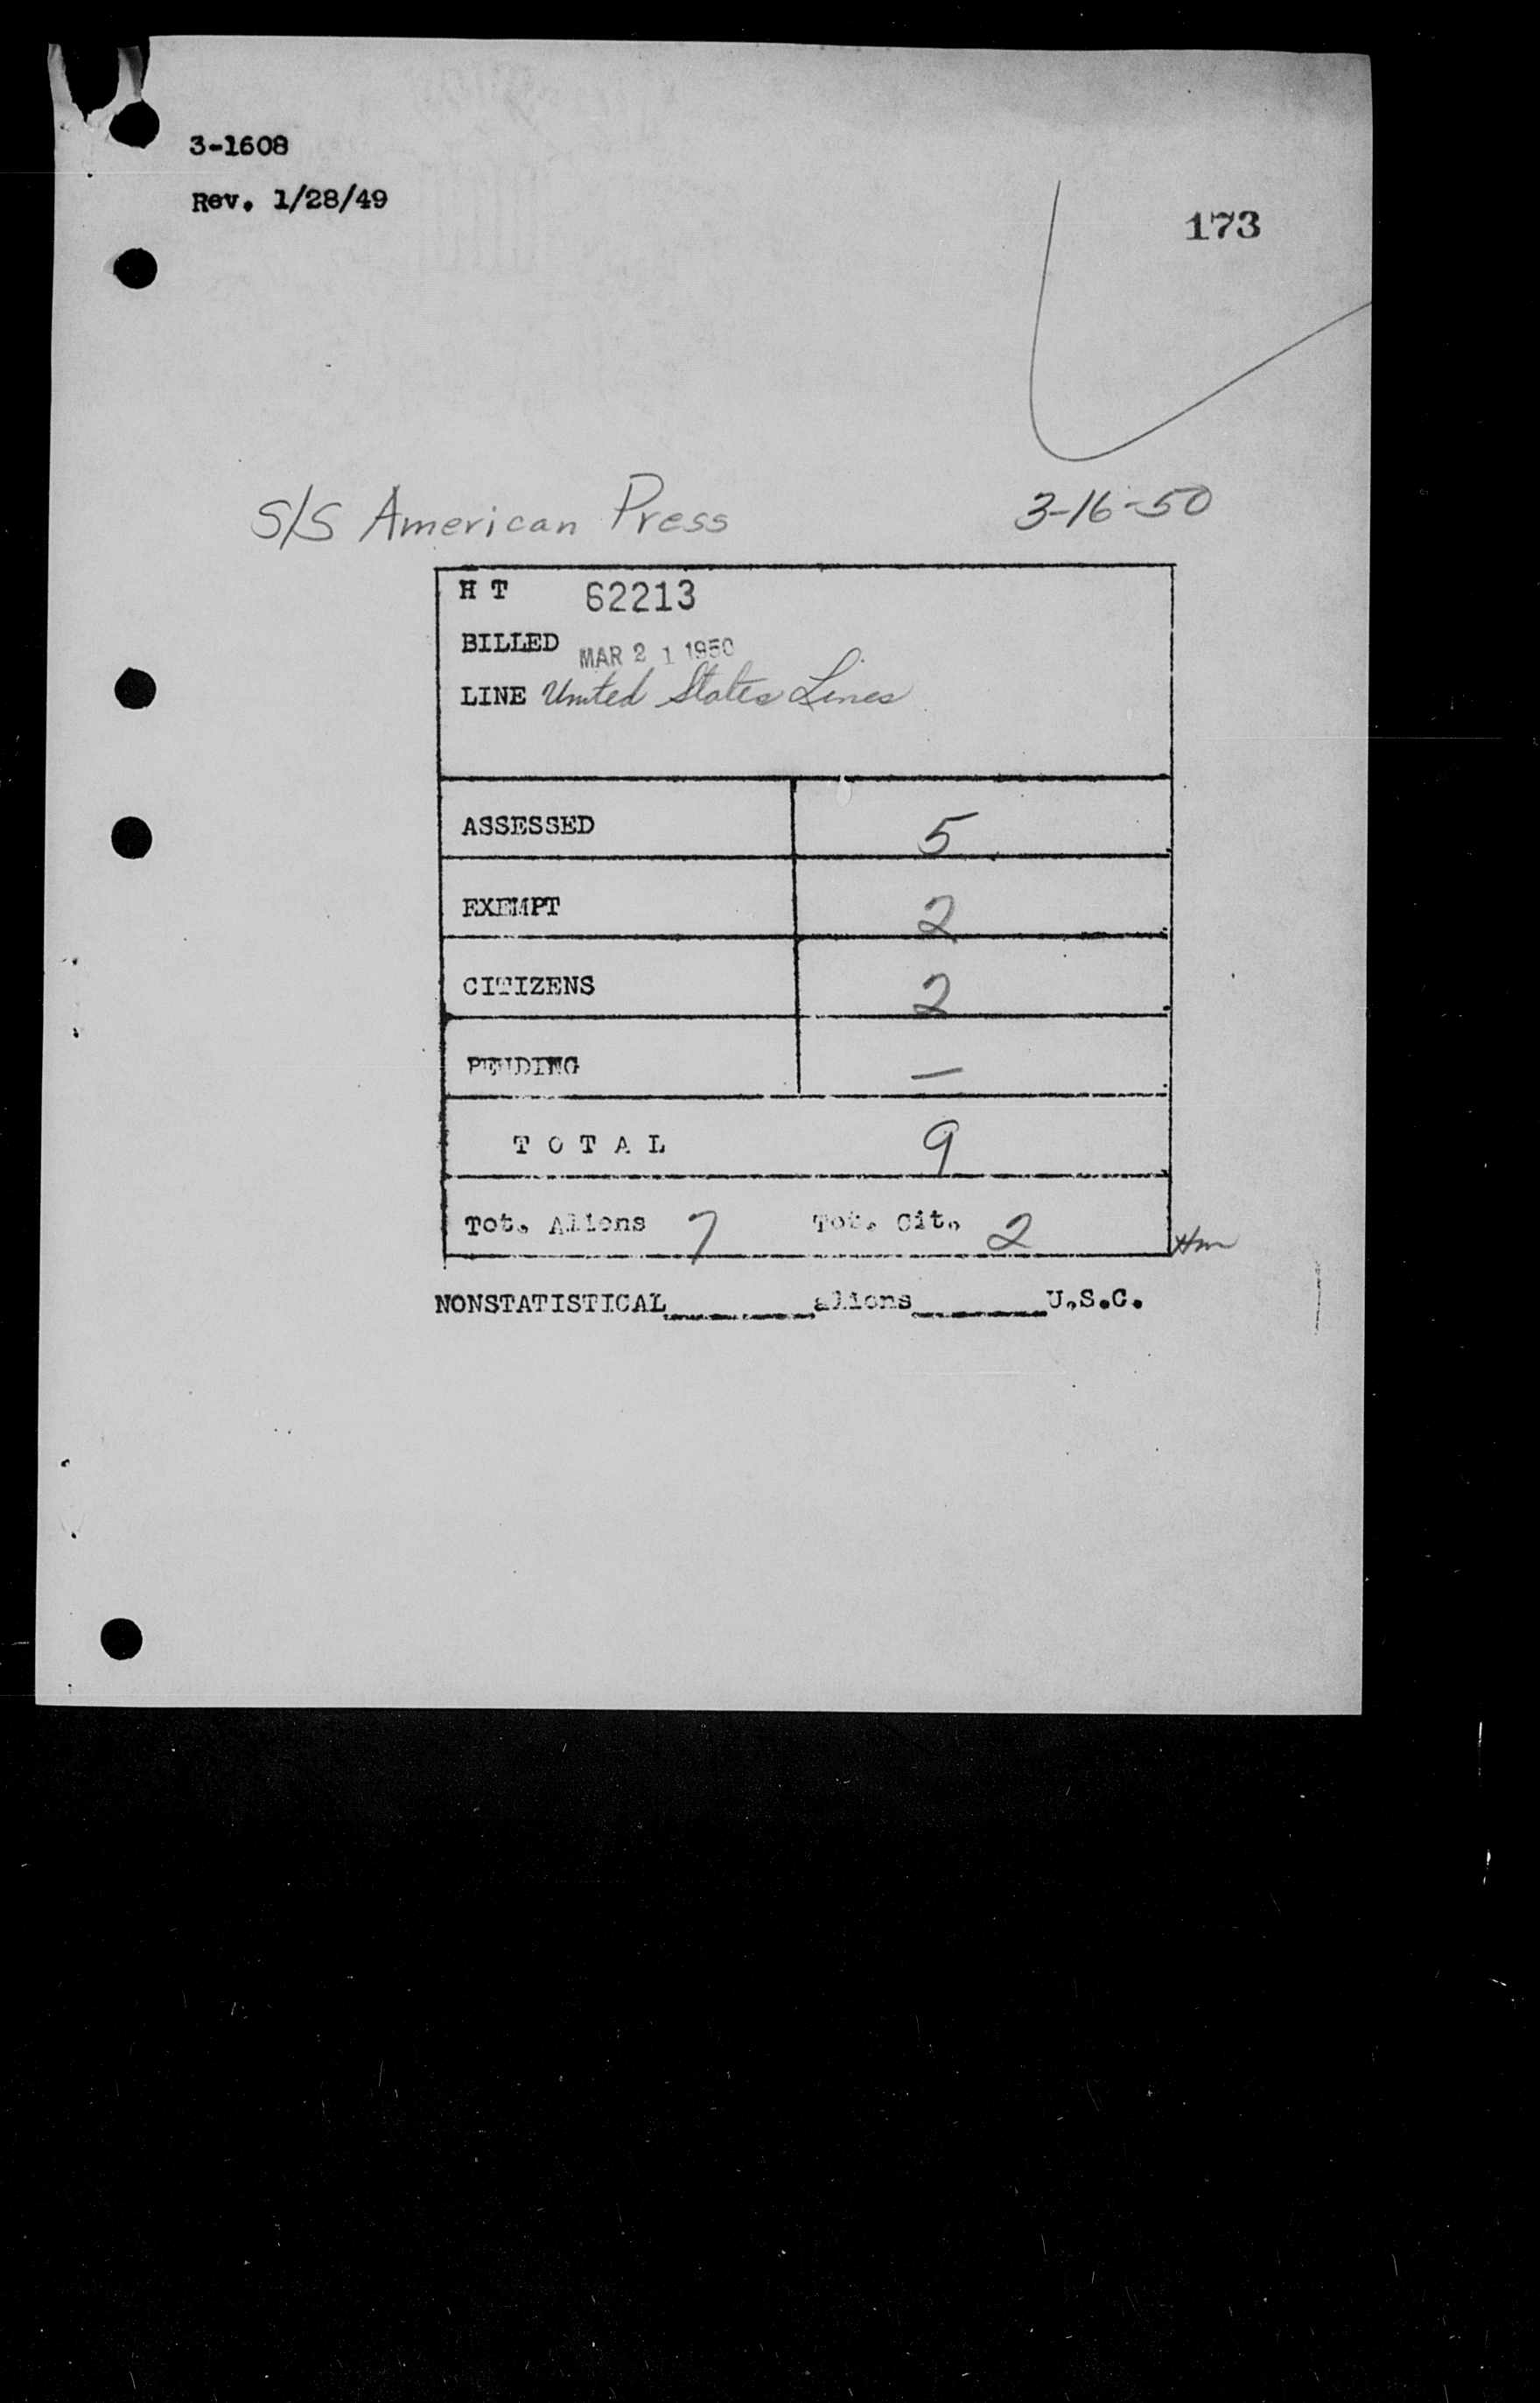 3-1608
Rev. 1/28/49
173
S/S American Press 3-16-50
H T 62213
BILLED MAR 21 1950
LINE United States Lines
ASSESSED 5
EXEMPT 2
CITIZENS 2
PENDING —
T O T A L 9
Tot. Aliens 7 Tot. Cit. 2
Hm
NONSTATISTICAL________aliens________U.S.C.